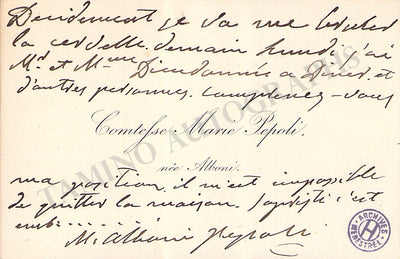 Décidement je vais me brûler
la cervelle, demain lundi j'ai
Mr et Mme Dieudonné a diner, et
d'autres personnes. Comprenez-vous
Comtesse Marie Pepoli.
née Alboni.
ma position, il m'est impossible
de quitter la maison. Sapristi c'est
emb........
M. Alboni Pepoli
TAMINO AUTOGRAPHS
ARCHIVES